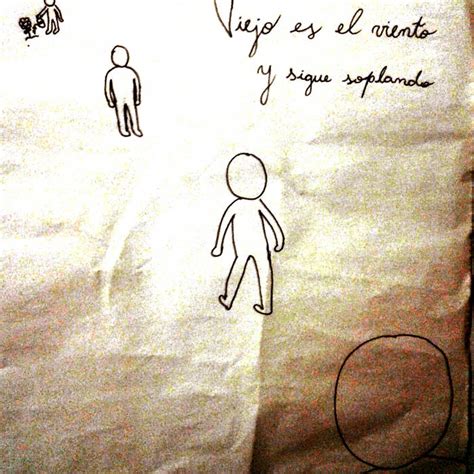 Viejo es el viento
y sigue soplando